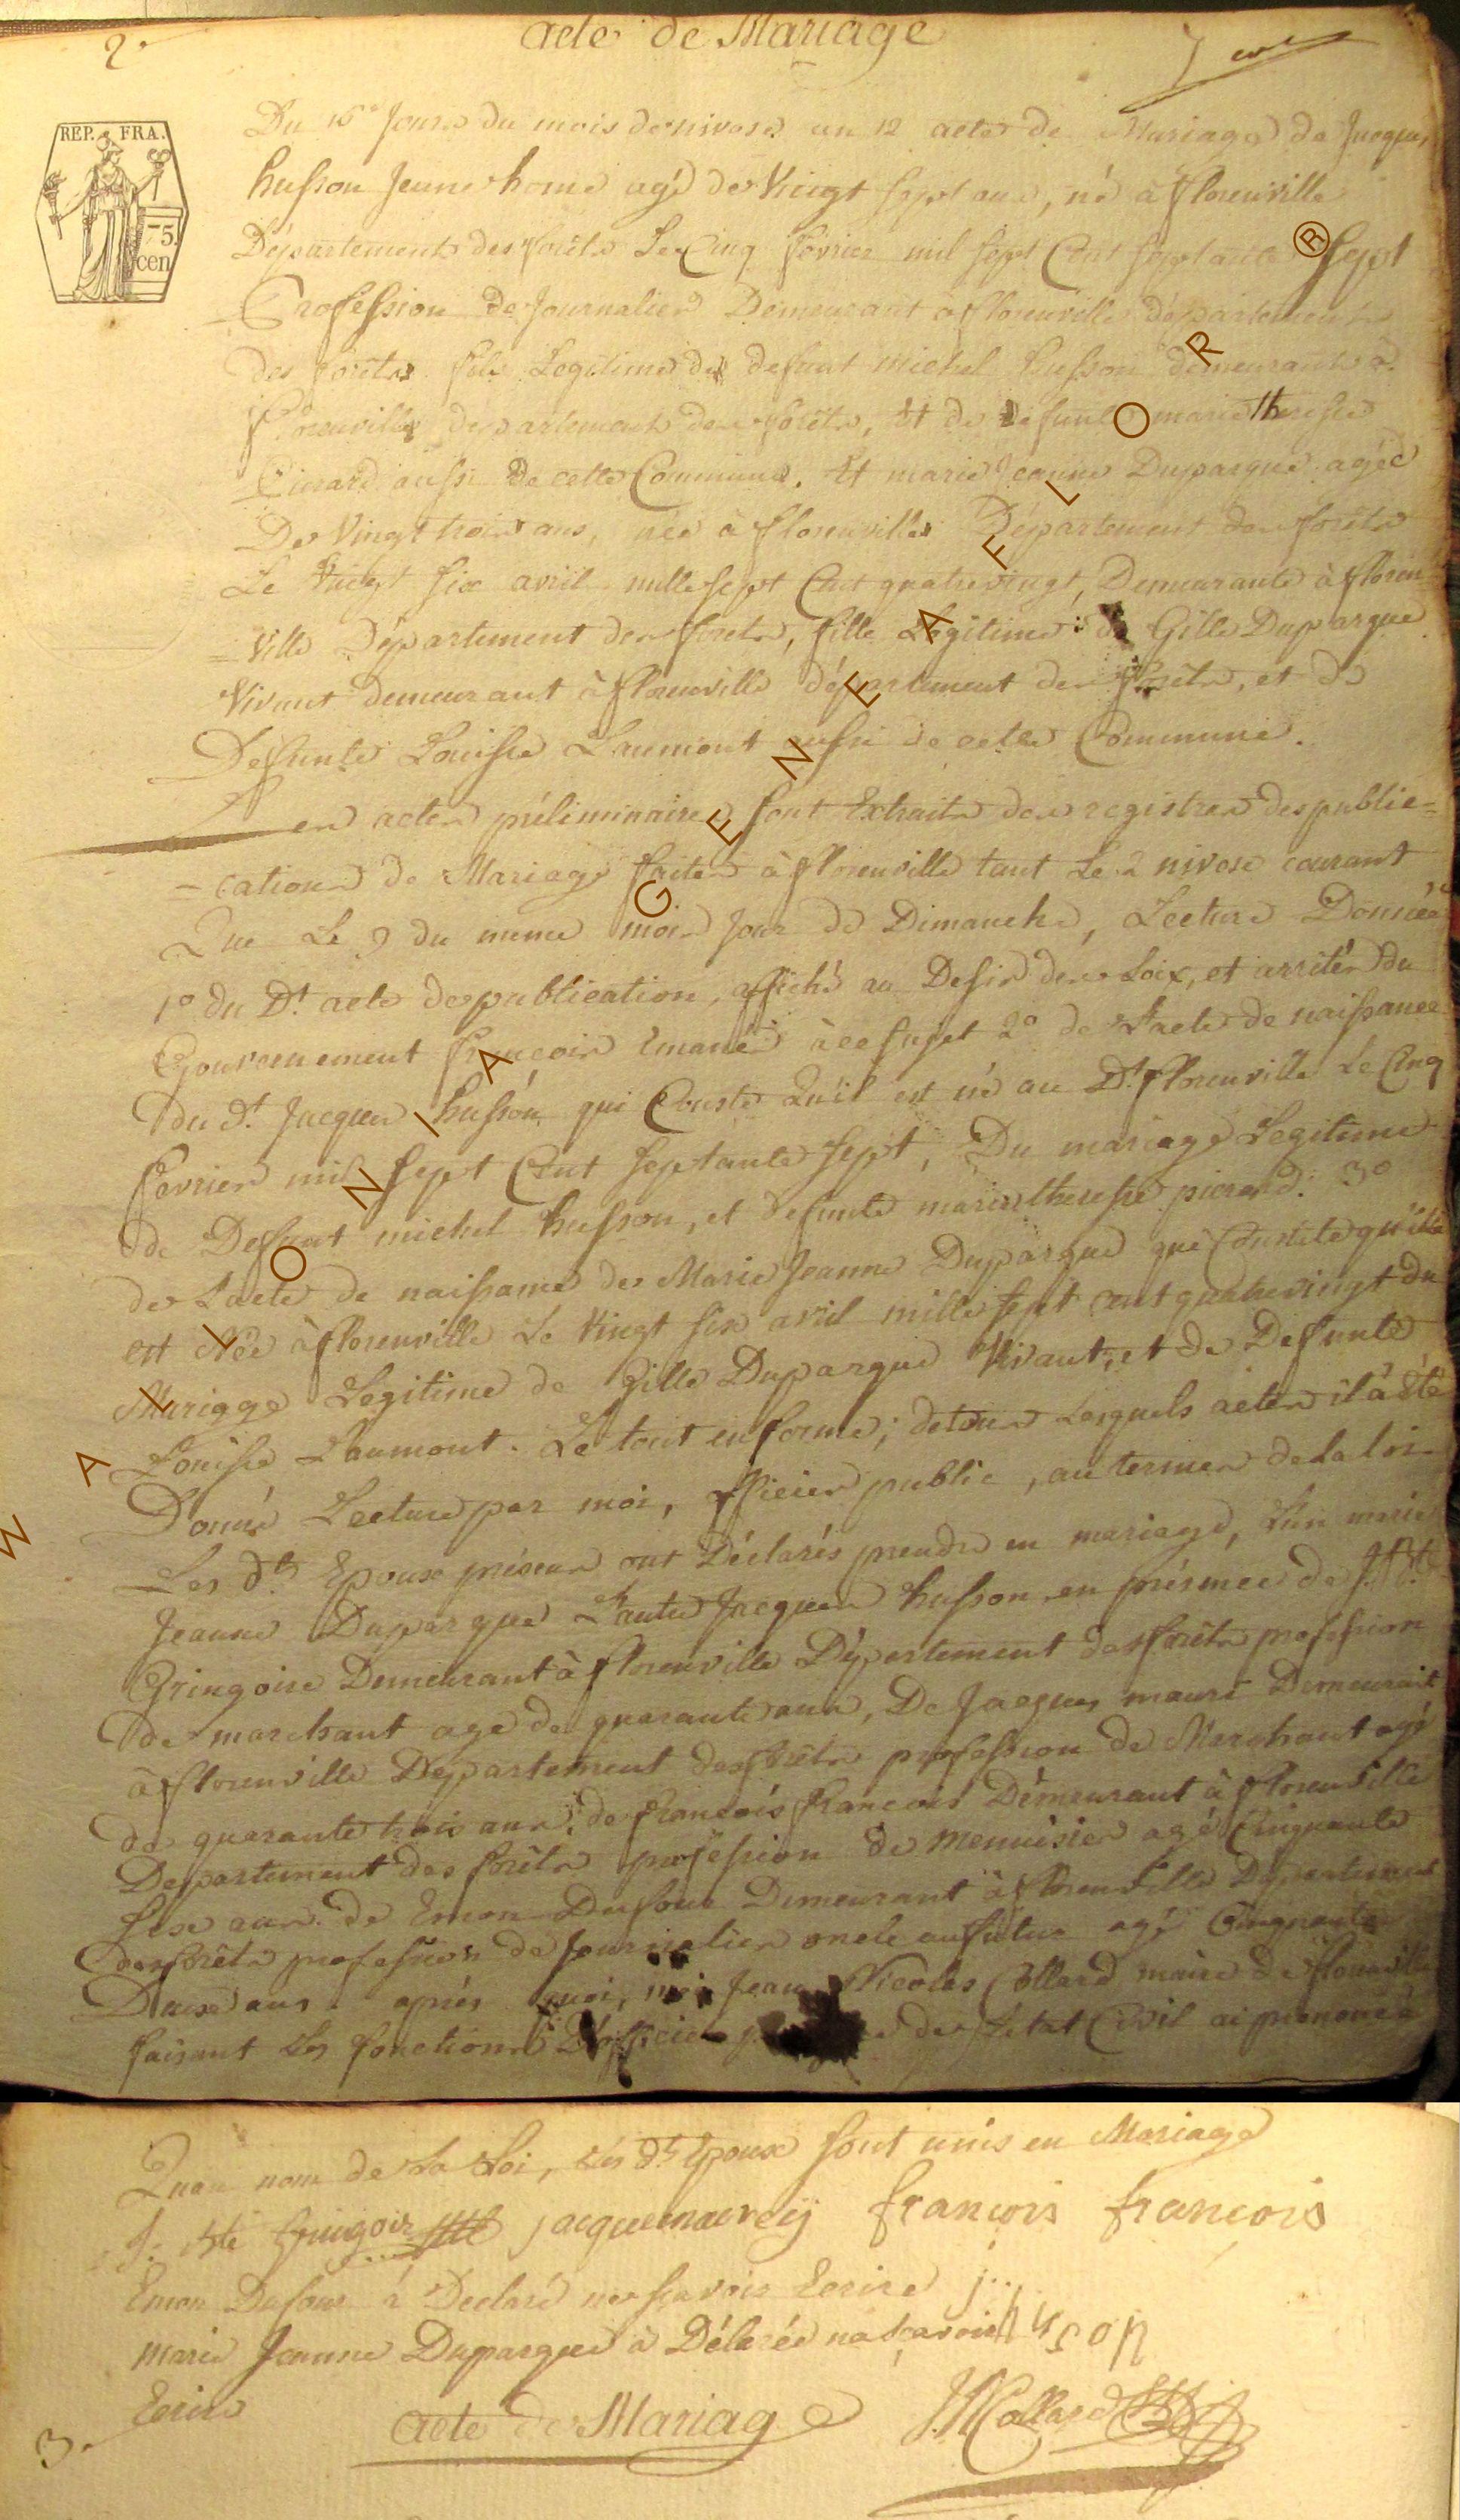 acte de Mariage
2.
REP. FRA.
75
cen
Du 15e Jour du mois de nivose an 12 acte de Mariage de Jacques
husson Jeune home agé de Vingt sept ans, né à florenville
Département des forêts Le Cinq février mil sept Cent septante sept
Profession de Journalier Demeurant à florenville département
des forêts fils Legitime de defunt michel husson demeurant à
florenville departement des forêts, Et de defunte marie theresse
Pierard aussi de cette Commune. Et marie Jeanne Duparque agée
De Vingt trois ans, née à florenville Département des forêts
Le Vingt six avril mille sept Cent quatrevingt, Demeurante à floren
=ville Département des forets, fille Legitime de Gille Duparque
Vivant demeurant à florenville département des forêts, et de
Defunte Louisse Laumont aussi de cette Commune.
Les actes préliminaires sont Extraits des registres des publie=
=cations de Mariage faites à florenville tant Le 2 nivose courant
Que Le 9 du meme mois Jour de Dimanche, Lecture Donnée
1° du Dt. acte de publication, affiché au Desir des Loix, et arrités du
Gouvernement françois Emané à ce sujet 2° de L'acte de naissance
du dt. Jacques husson qui Conste Qu'il est né au Dt. florenville Le Cinq
fevrier mil sept Cent septante sept, Du mariage Legitime
de Defunt michel husson, et defunte marie theresse pierard. 3°
de L'acte de naissance de Marie Jeanne Duparque qui Constate qu'elle
est Née à florenville Le Vingt six avril mille sept cent quatrevingt du
Mariage Legitime de Gille Duparque Vivant, et de Defunte
Louisse Laumont. Le tout en forme; de tous Lesquels actes il a été
Donné Lecture par moi, officier public, au termes de la loi
Les dts. Epoux présens ont Déclarés prendre en mariage, L'un marie
Jeanne Duparque L'autre Jacques husson en présence de J. Bte
Gringoire Demeurant à florenville Département des forêts profession
de marchant age de quarante ans, De Jacques mauri Demeurait
à florenville Departement des forêts profession de Marchant agé
de quarante trois ans, de françois françois Demeurant à florenville
Departement des forêts profession de Menuisier agé Cinquante
Sise ans. de Emon Dufour Demeurant à florenville Departement
des forêts profession de Journalier oncle au futur agé Cinquante
Deuse ans. après quoi, moi Jean Nicolas Collard maire de florenville
faisant Les fonctions D'officier de L'etat Civil ai prononcé
Quau nom de La Loi, Les dts Epoux sont unis en Mariage
J. Bte Gringoir jacquemaurcij françois françois
Emon Dufour à Declaré ne scavoir Ecrire j. huson
Marie Jeanne Duparque à Délarée na scavoir
Ecrire
JN Collard
3.
acte de Mariage
WALLONIA GENEAFLOR ®